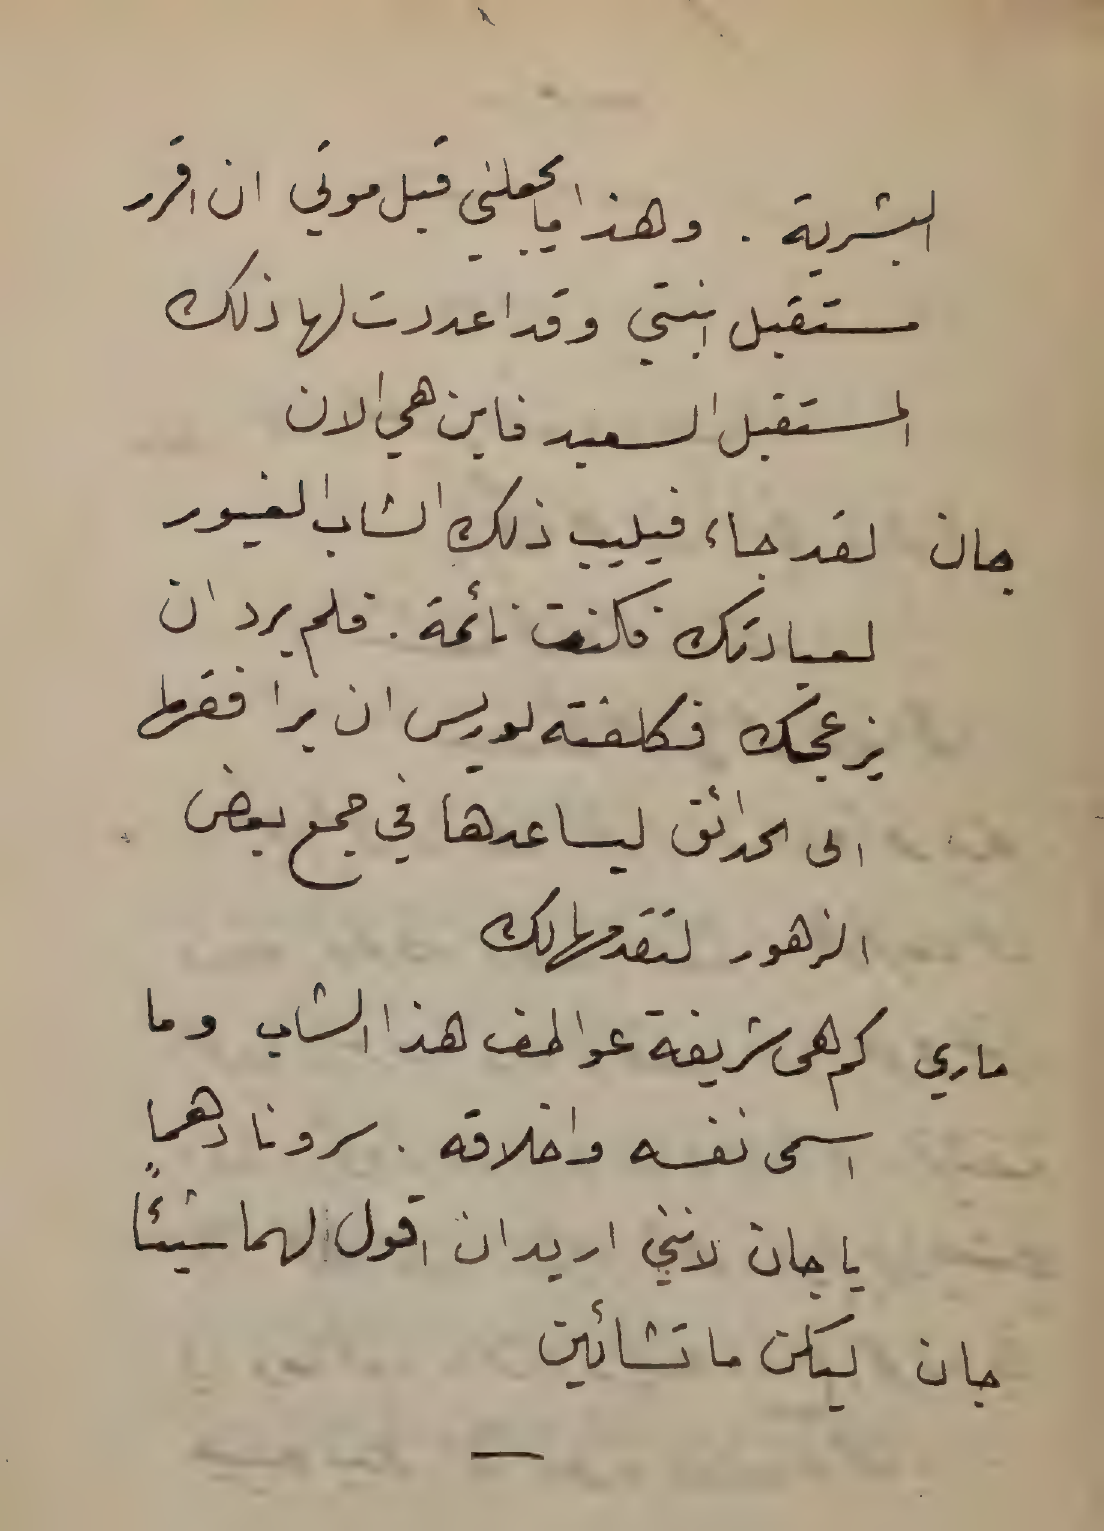 البشرية . وهذا ما يجعلني قبل موتي ان اقرر
مستقبل ابنتي وقد اعددت لها ذلك
المستقبل السعيد فاين هي الان
جان لقد جاء فيليب ذلك الشاب الغيور
لعيادتك فكنت نائمة . فلم يرد ان
يزعجك فكلفته لويس ان يرافقها
الى الحدائق ليساعدها في جمع بعض
الزهور لتقدمها لك
ماري كم هي شريفة عواطف هذا الشاب وما
اسمى نفسه واخلاقه . سرو نادهما
يا جان لانني اريد ان اقول لهما شيئاً
جان ليكن ما تشائين